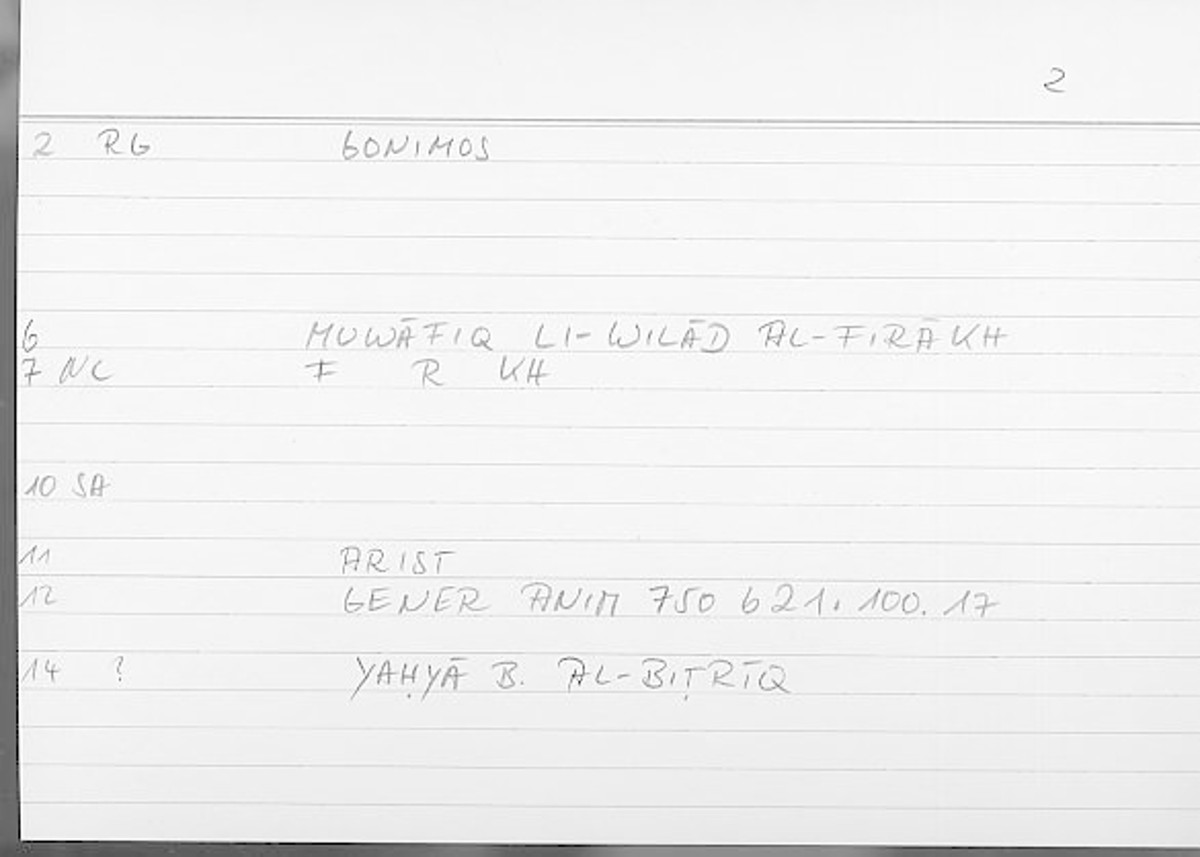 2
2 RG GONIMOS
6 MUWĀFIQ LI-WILĀD AL-FIRĀKH
7 NC F R KH
10 SA
11 ARIST
12 GENER ANIM 750 b 21. 100. 17
14 ? YAḤYĀ B. AL-BIṬRĪQ